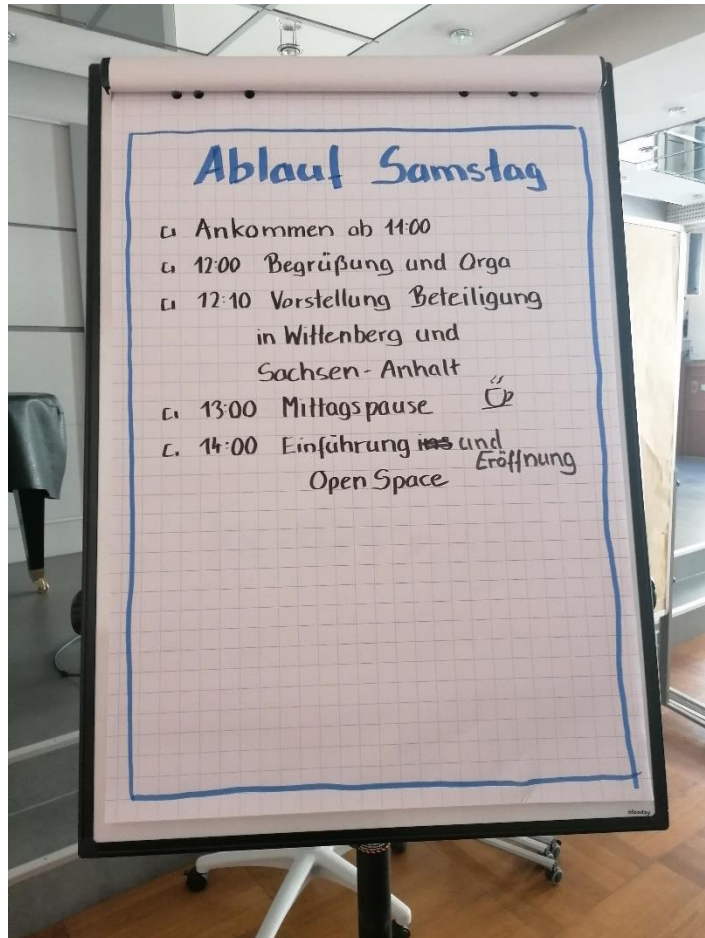 Ablauf Samstag
Ankommen ab 11:00
12:00 Begrüßung und Orga
12:10 Vorstellung Beteiligung
in Wittenberg und
Sachsen-Anhalt
13:00 Mittagspause
14:00 Einführung ins und
Eröffnung
Open Space